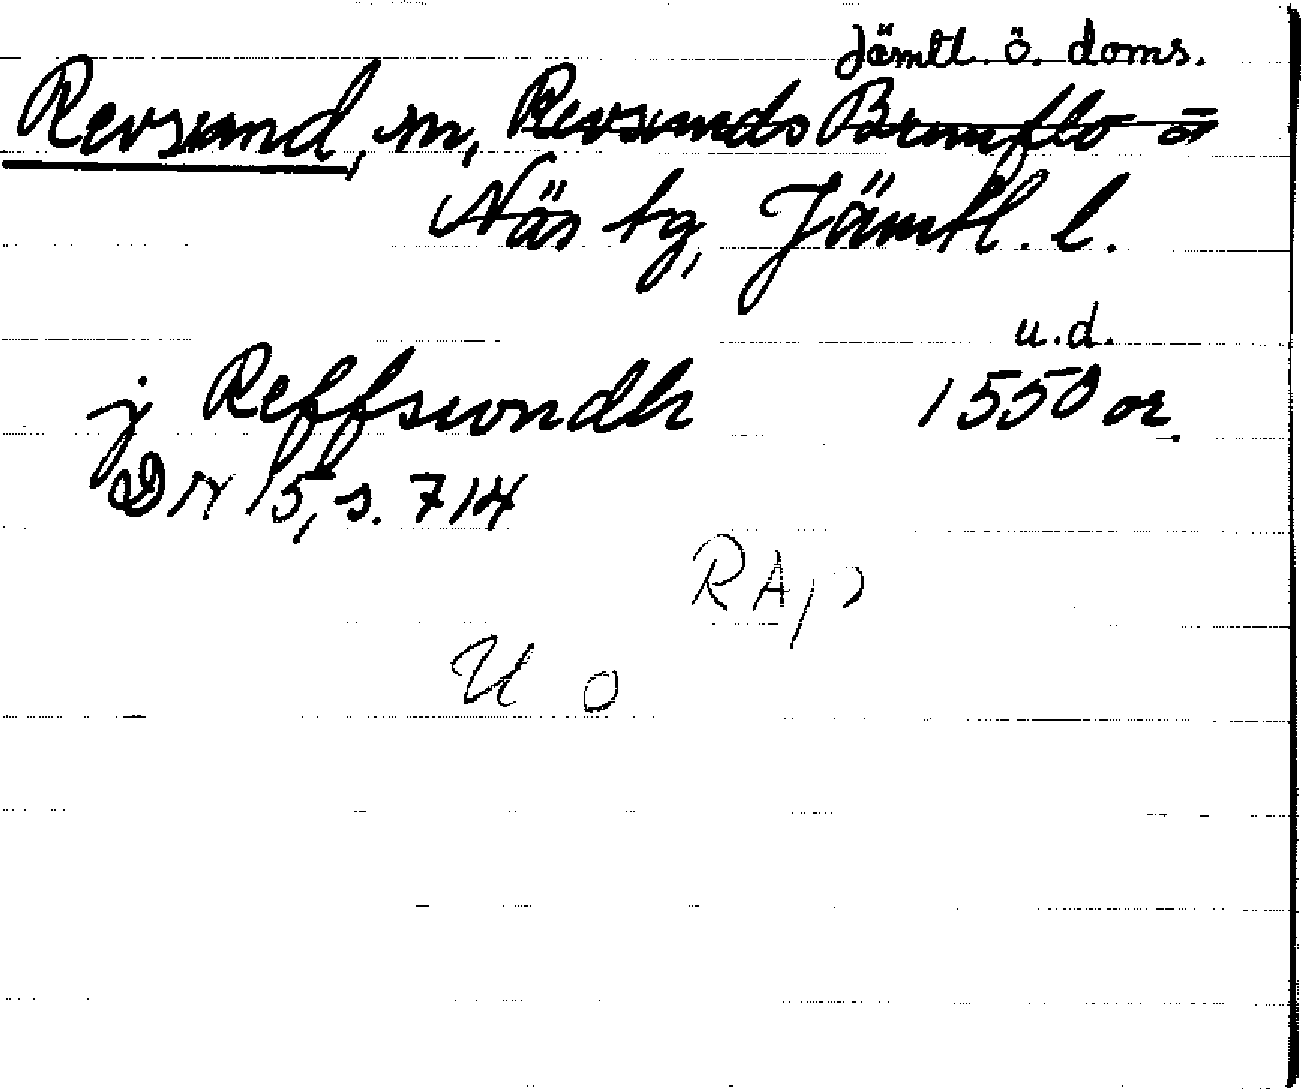 Jämtl. ö. doms.
Revsund, sn, Revsunds Brunflo o
Näs tg, Jämtl. l.
u.d.
j Reffswndh 1550 or.
DN 15, s. 714
RAp
U o